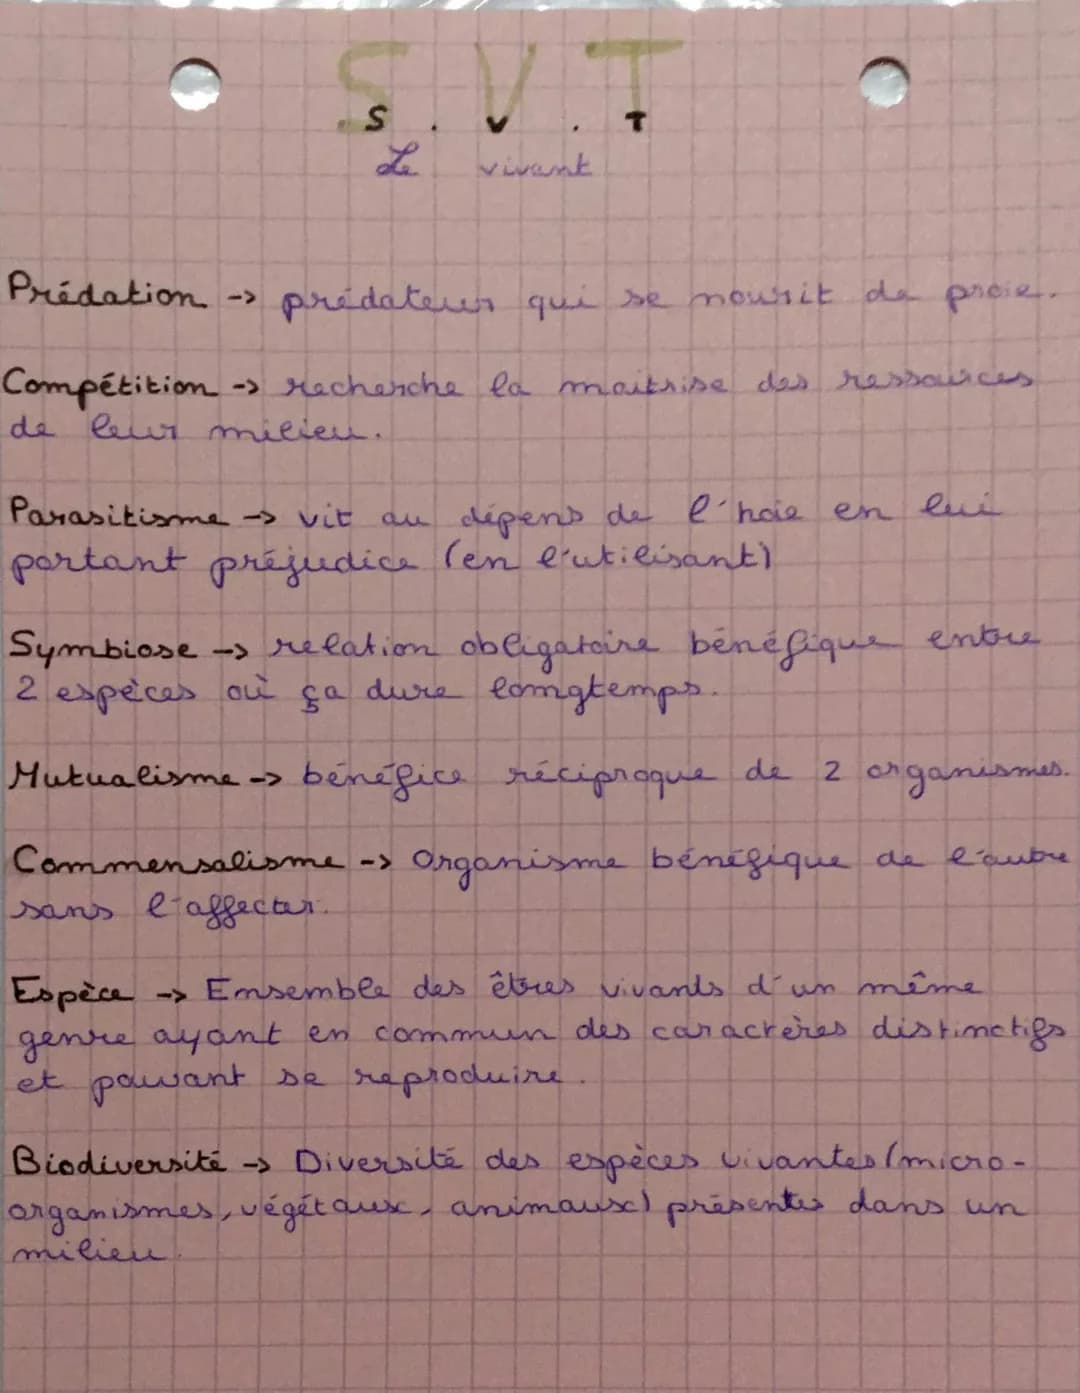 S.V.T
S.V.T
Le vivant
Prédation -> prédateur qui se nourit de proie.
Compétition -> recherche la maitrise des ressources
de leur milieu.
Parasitisme -> vit au dépens de l'hoie en lui
portant préjudice (en l'utilisant)
Symbiose -> relation obligatoire bénéfique entre
2 espèces où ça dure lomgtemps.
Mutualisme -> bénéfice réciproque de 2 organismes.
Commensalisme -> Organisme bénéfique de l'autre
sans l'affecter.
Espèce -> Ensemble des êtres vivants d'un même
genre ayant en commun des caractères distinctifs
et pouvant se reproduire.
Biodiversité -> Diversité des espèces vivantes (micro-
organismes, végétaux, animaux) présentes dans un
milieu.